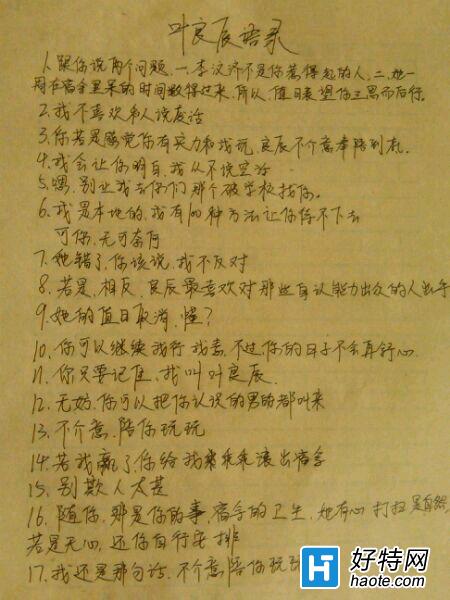 叶良辰语录
1.跟你说两个问题,一.李汶济不是你惹得起的人,二.她一
周在宿舍里呆的时间数得过来,所以,值日表望你三思而后行。
2.我不喜欢和人说废话
3.你若是感觉你有实力和我玩,良辰不介意奉陪到底。
4.我会让你明白,我从不说空话
5.嘿,别让我去你们那个破学校找你。
6.我是本地的,我有100种方法让你待不下去
可你,无可奈何
7.她错了,你该说,我不反对
8.若是,相反,良辰最喜欢对那些自认能力出众的人出手
9.她的值日取消,懂?
10.你可以继续我行我素,不过,你的日子不会再舒心
11.你只要记住,我叫叶良辰.
12.无妨,你可以把你认识的男的都叫来
13.不介意,陪你玩玩
14.若我赢了,你给我乖乖滚出宿舍
15.别欺人太甚
16.随你,那是你的事,宿舍的卫生,她有心打扫是自然,
若是无心,还你自行安排
17.我还是那句话,不介意陪你玩玩
好特网
haote.com